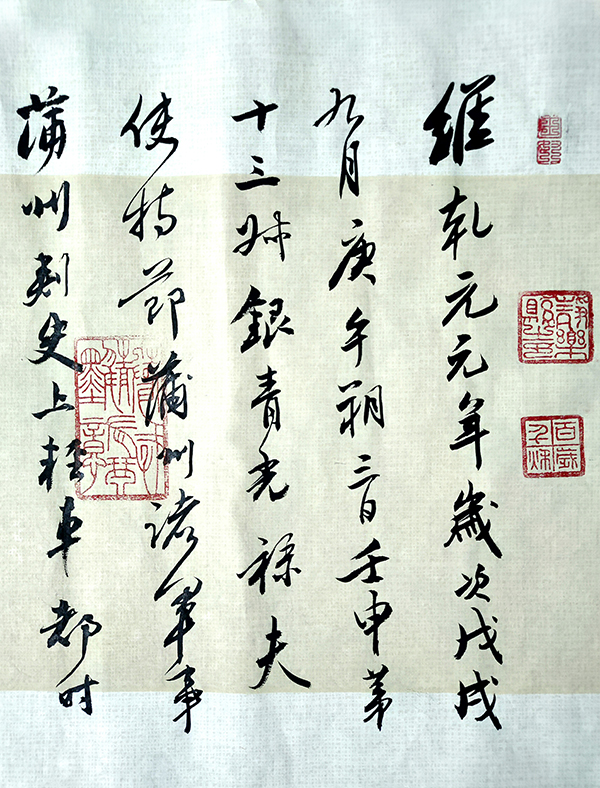 維乾元元年歲次戊戌
九月庚午朔三日壬申苐
十三叔銀青光祿夫
使持節蒲州諸軍事
蒲州刺史上輕車都尉